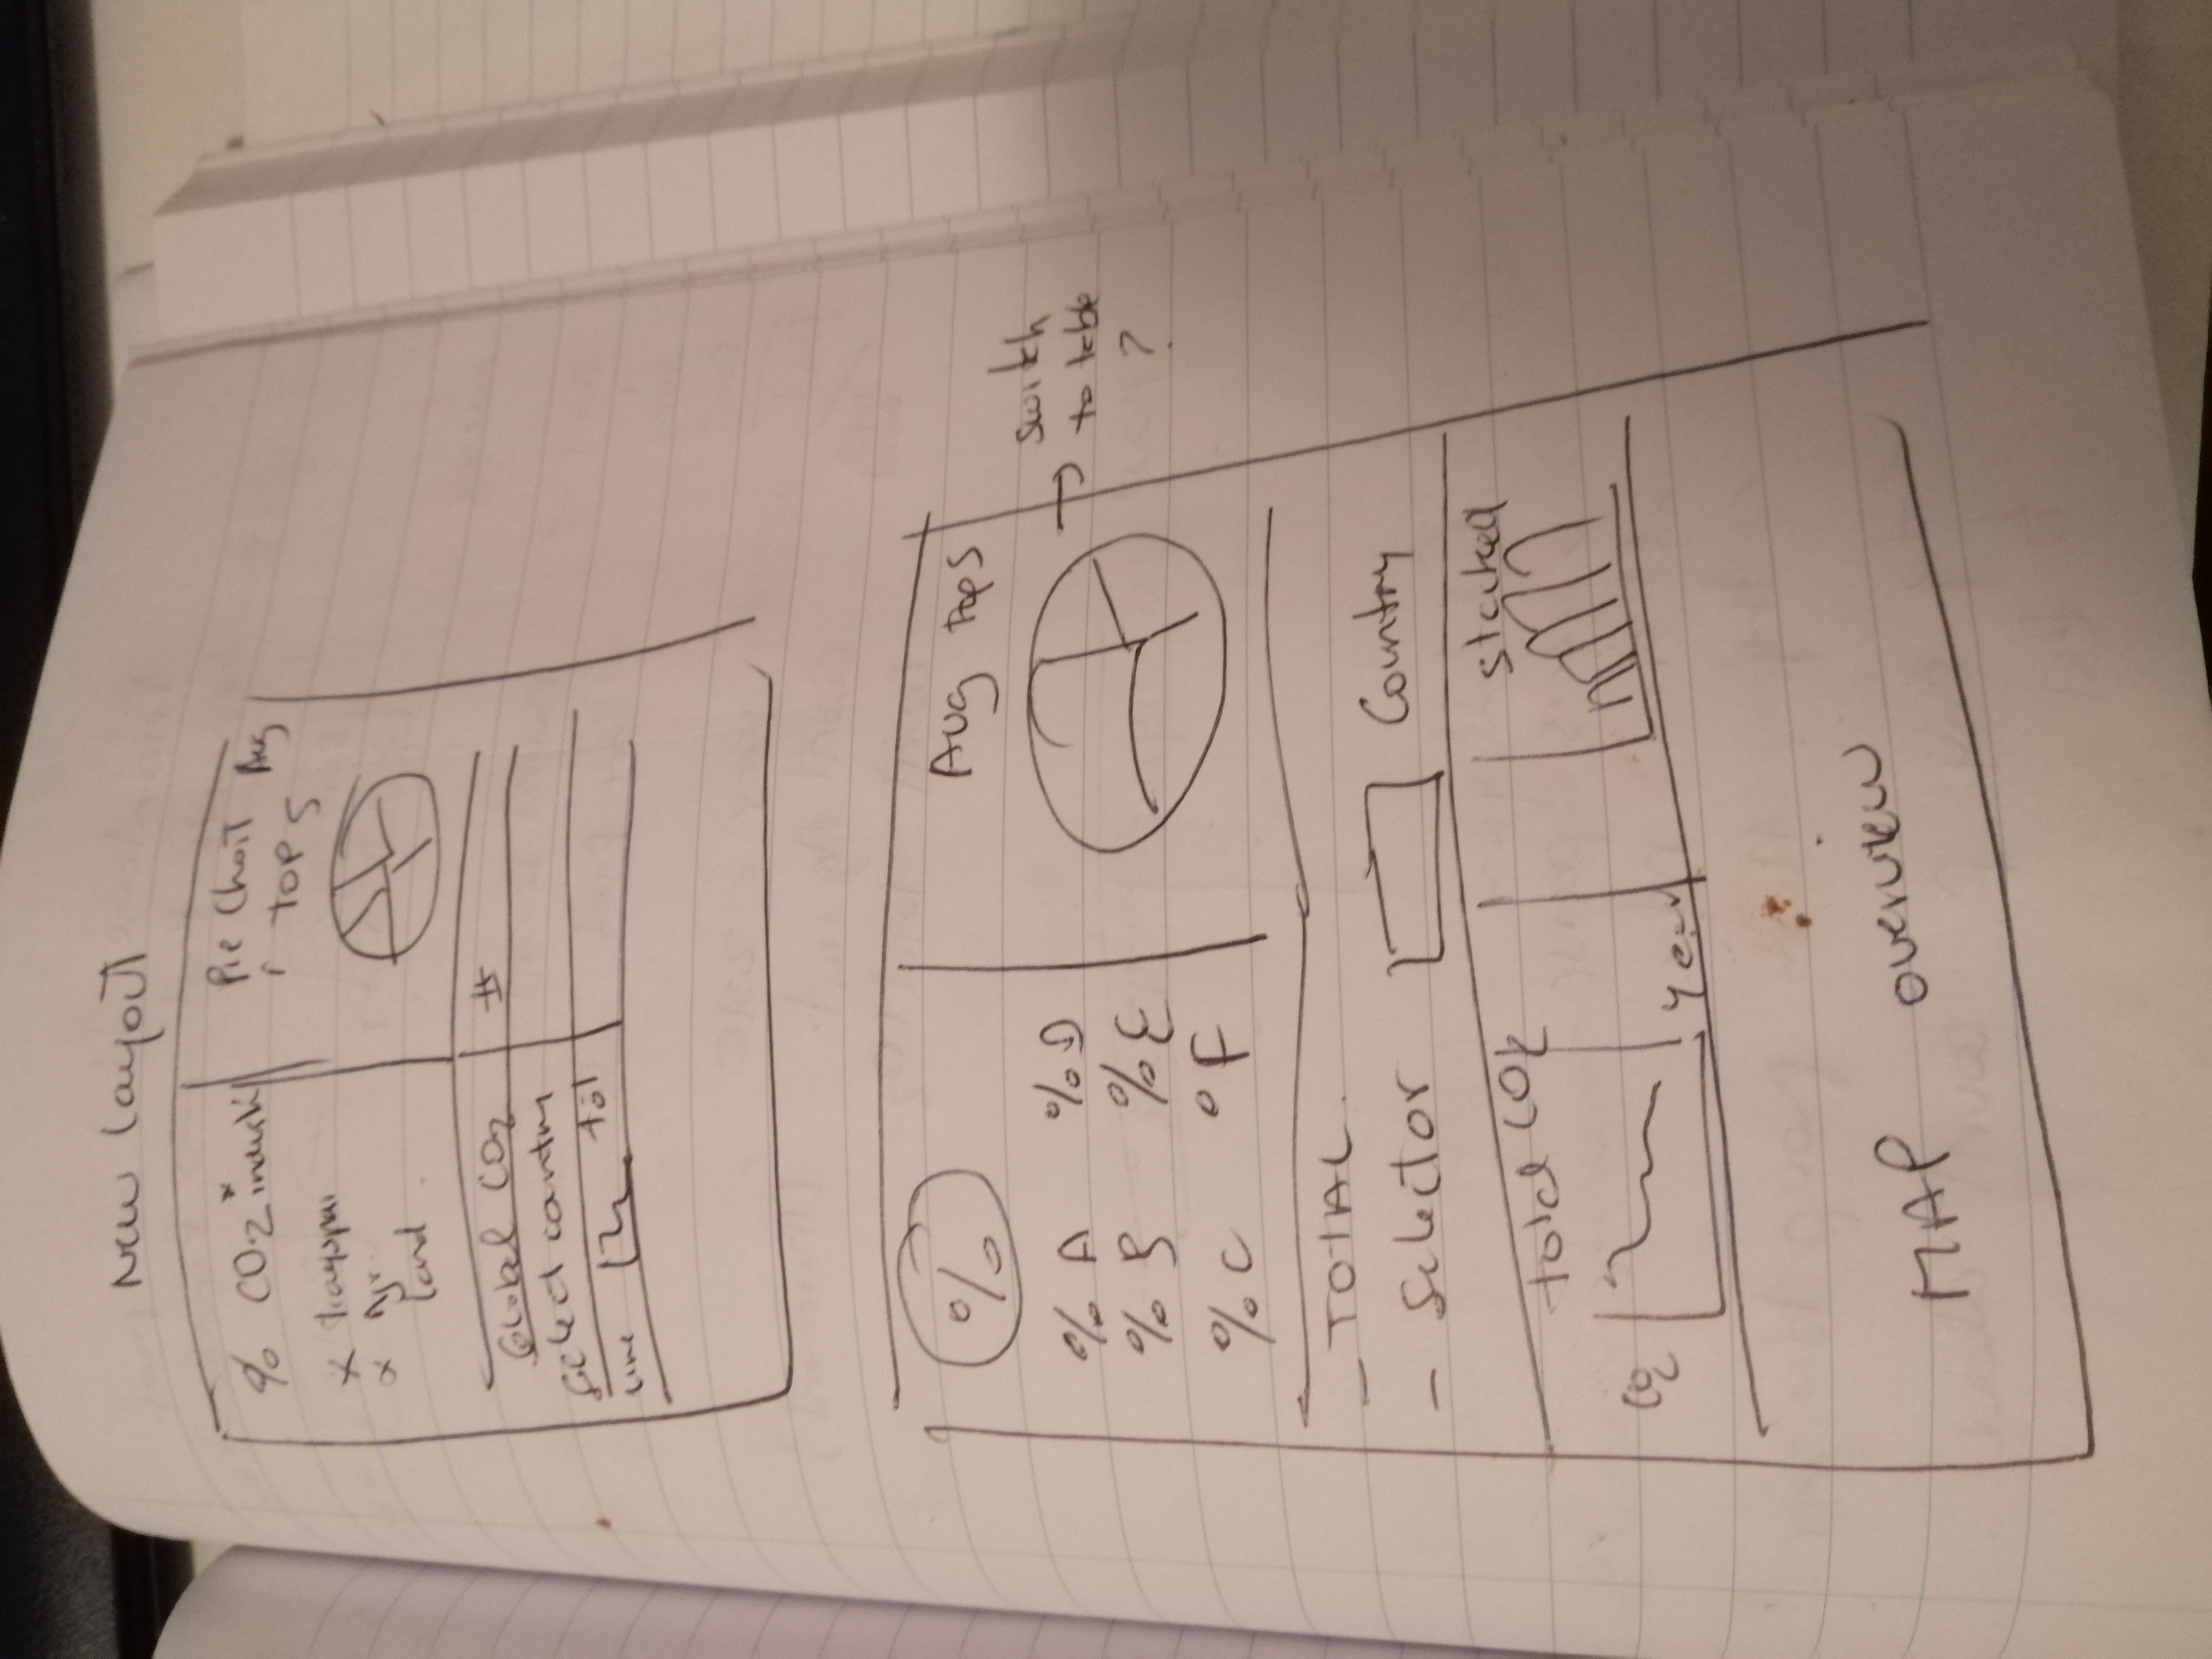 New Layout
% CO2 * industri
x transpor
x Agr.
Land
Pie Chart Avg
TOP 5
Global CO2 #
Select country
Line tot
%
% A % D
% B % E
% C ° F
Avg top 5
switch
to table
?
- TOTAL.
- Selector Country
total CO2
CO2
Year
stacked
MAP overview